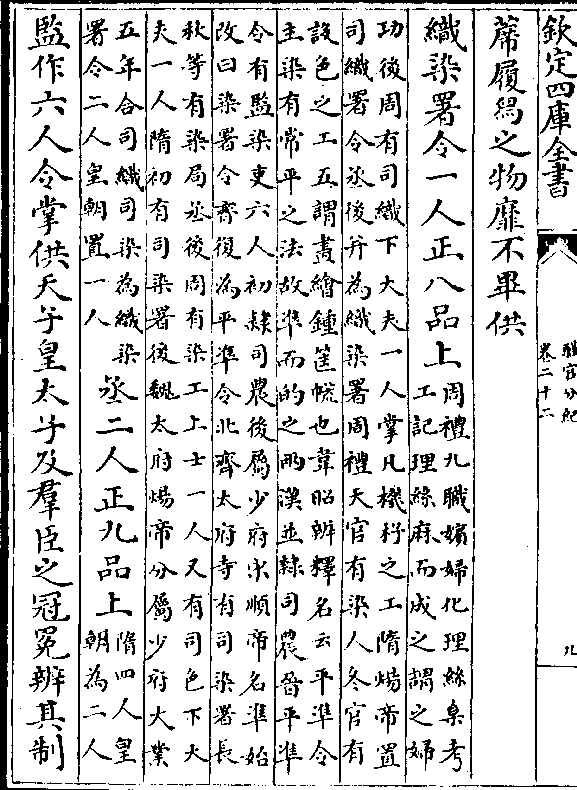 欽定四庫全書
職官分紀
卷二十二
九
蓆履舄之物靡不畢供
織染署令一人正八品上
周禮九職嬪婦化理絲枲考
工記理絲麻而成之謂之婦
功後周有司織下大夫一人掌凡機杼之工隋煬帝置
司織署令丞後并為織染署周禮天官有染人冬官有
設色之工五謂畫繪鍾筐㡛也韋昭辨釋名云平凖令
主染有常平之法故凖而的之兩漢並隸司農晉平凖
令有監染吏六人初隸司農後屬少府宋順帝名凖始
改曰染署令齊復為平凖令北齊太府寺有司染署長
秋等有染局丞後周有染工上士一人又有司色下大
夫一人隋初有司染署後魏太府煬帝分屬少府大業
五年合司織司染為織染
署令二人皇朝置一人
丞二人正九品上
隋四人皇
朝為二人
監作六人令掌供天子皇太子及羣臣之冠冕辨其制